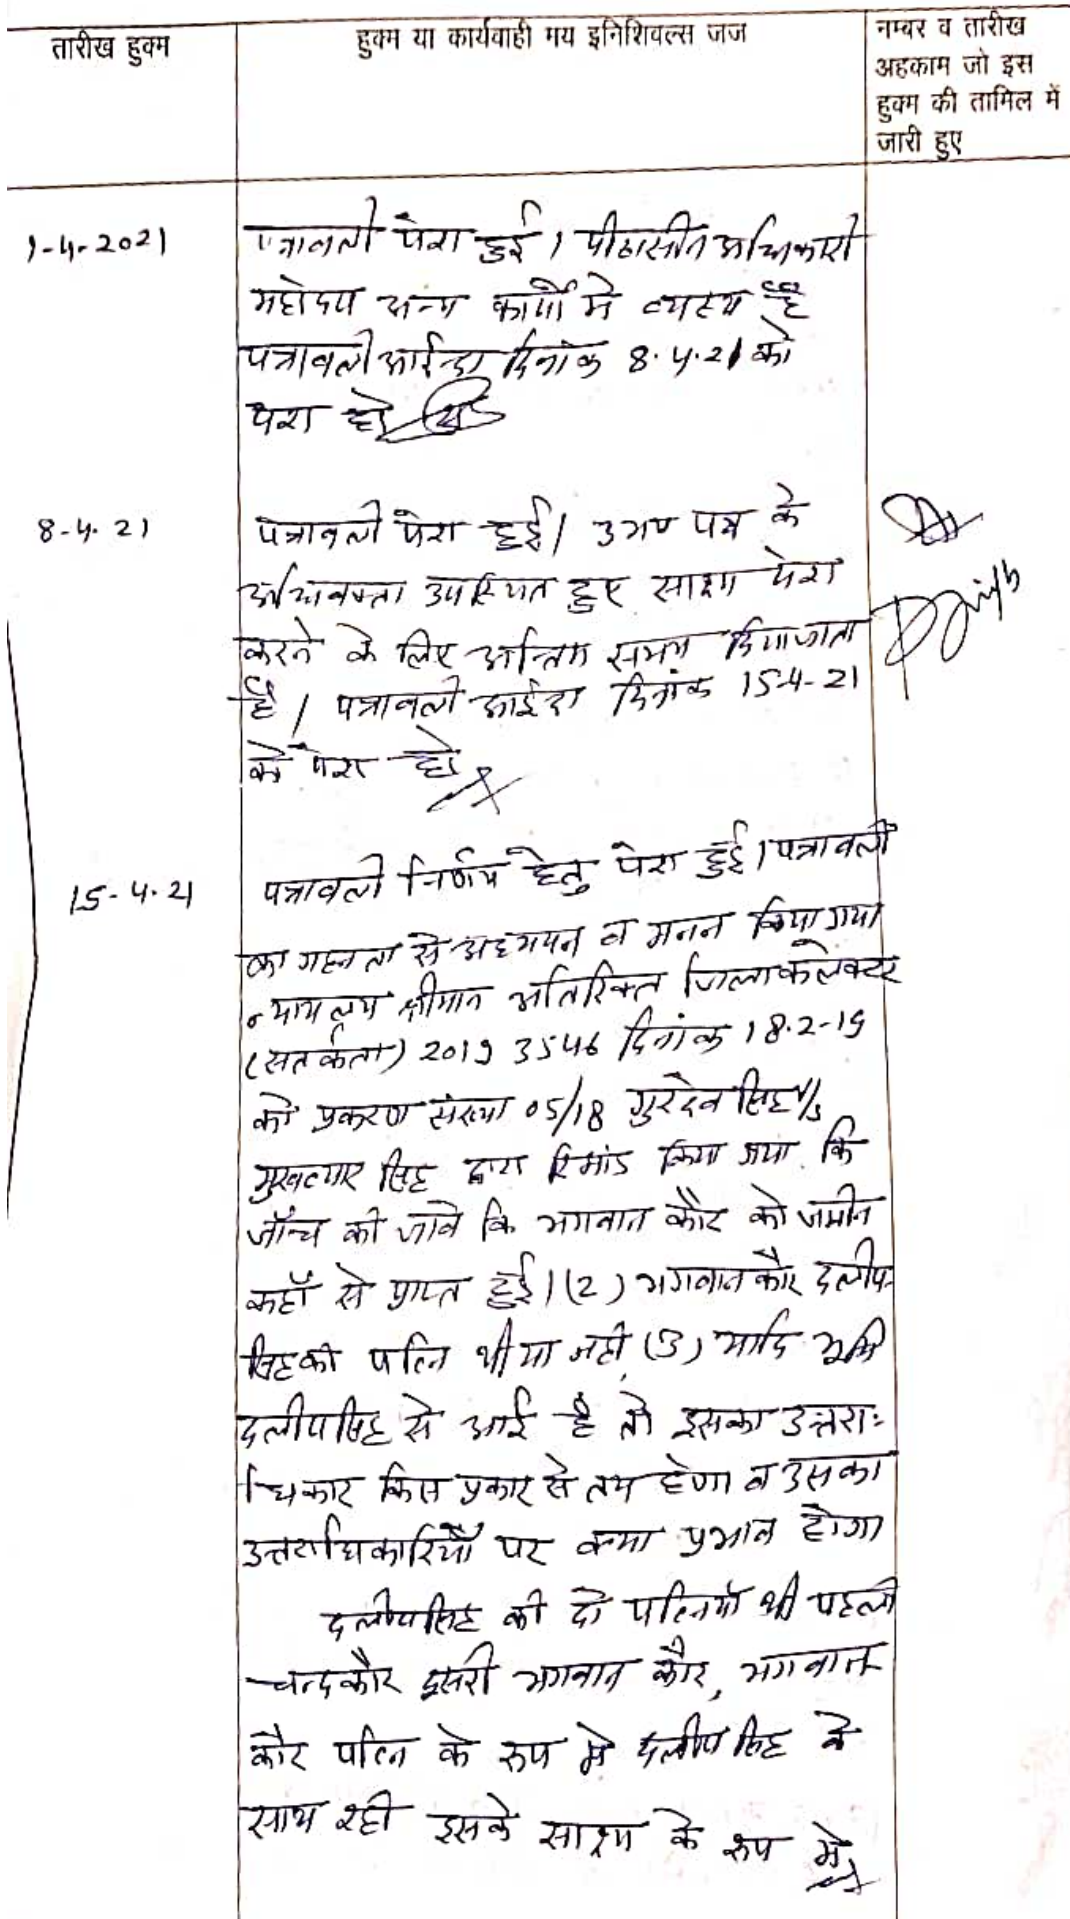 तारीख हुक्म
हुक्म या कार्यवाही मय इनिशियल्स जज
नम्बर व तारीख
अहकाम जो इस
हुक्म की तामिल में
जारी हुए
1-4-2021
पत्रावली पेश हुई। पीठासीन अधिकारी
महोदय अन्य कार्यों मे व्यस्थ है
पत्रावली आईन्दा दिनांक 8.4.21 को
पेश हो
8-4-21
पत्रावली पेश हुई। उभय पक्ष के
अधिवक्ता उपस्थित हुए साक्ष्य पेश
करने के लिए अन्तिम समय दिया जाता
है। पत्रावली आईंदा दिनांक 15-4-21
को पेश हो
15-4-21
पत्रावली निर्णय हेतु पेश हुई। पत्रावली
का गहनता से अध्ययन व मनन किया गया
न्यायलय श्रीमान अतिरिक्त जिला कलेक्टर
(सतर्कता) 2019 3546 दिनांक 18-2-19
को प्रकरण संख्या 05/18 गुरदेव सिंह v/s
मुखत्यार सिंह द्वारा रिमांड किया गया कि
जाँच की जावे कि भगवान कौर को जमीन
कहाँ से प्राप्त हुई। (2) भगवान कौर दलीप-
सिंह की पत्नि थी या नही (3) यादि भूमि
दलीपसिंह से आई है तो इसका उत्तरा-
धिकार किस प्रकार से तय होगा व उसका
उत्तराधिकारियों पर क्या प्रभाव होगा
दलीपसिंह की दो पत्नियाँ थी पहली
चन्दकौर दूसरी भगवान कौर, भगवान
कौर पत्नि के रुप मे दलीप सिंह के
साथ रही इसके साक्ष्य के रुप मे